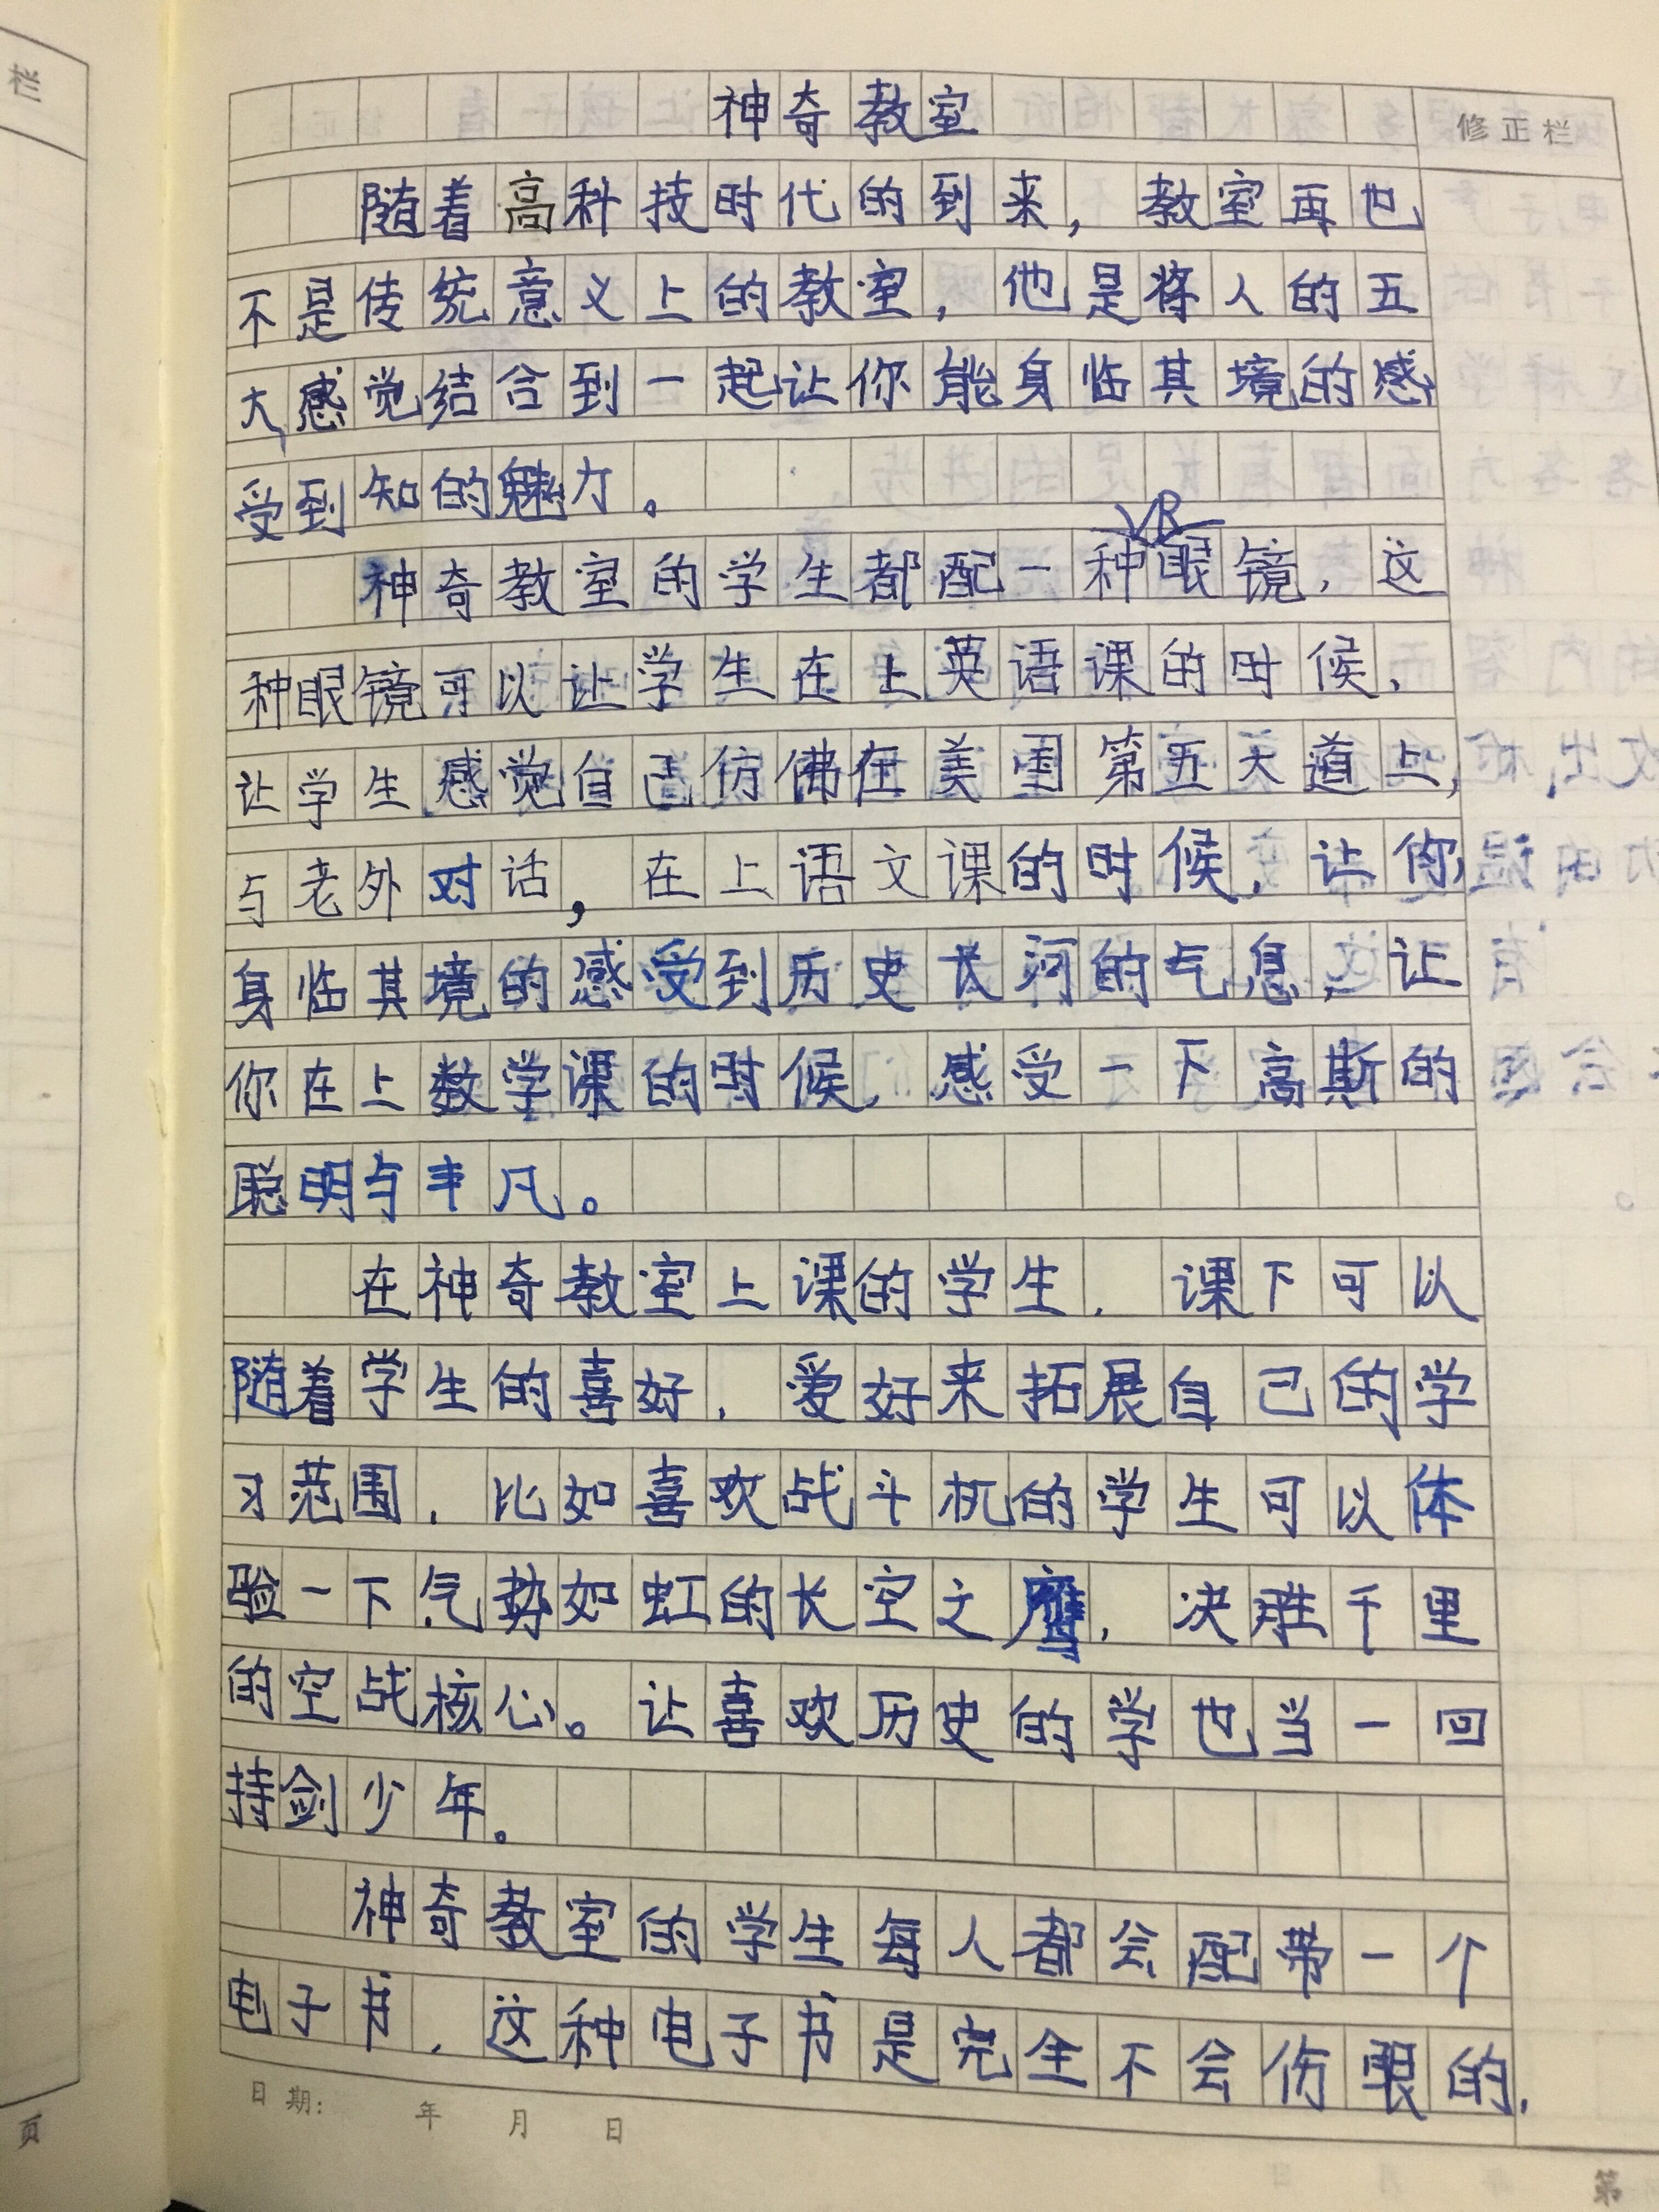 栏
神奇教室
修正栏
随着高科技时代的到来，教室再也
不是传统意义上的教室，他是将人的五
大感觉结合到一起让你能身临其境的感
受到知的魅力。
VR
神奇教室的学生都配一种眼镜，这
种眼镜可以让学生在上英语课的时候，
让学生感觉自己仿佛在美国第五大道上，
与老外对话，在上语文课的时候，让你
身临其境的感受到历史长河的气息，让
你在上数学课的时候，感受一下高斯的
聪明与丰凡。
在神奇教室上课的学生，课下可以
随着学生的喜好，爱好来拓展自己的学
习范围，比如喜欢战斗机的学生可以体
验一下气势如虹的长空之鹰，决胜千里
的空战核心。让喜欢历史的学也当一回
持剑少年。
神奇教室的学生每人都会配带一个
电子书，这种电子书是完全不会伤眼的，
日期： 年 月 日
页
第